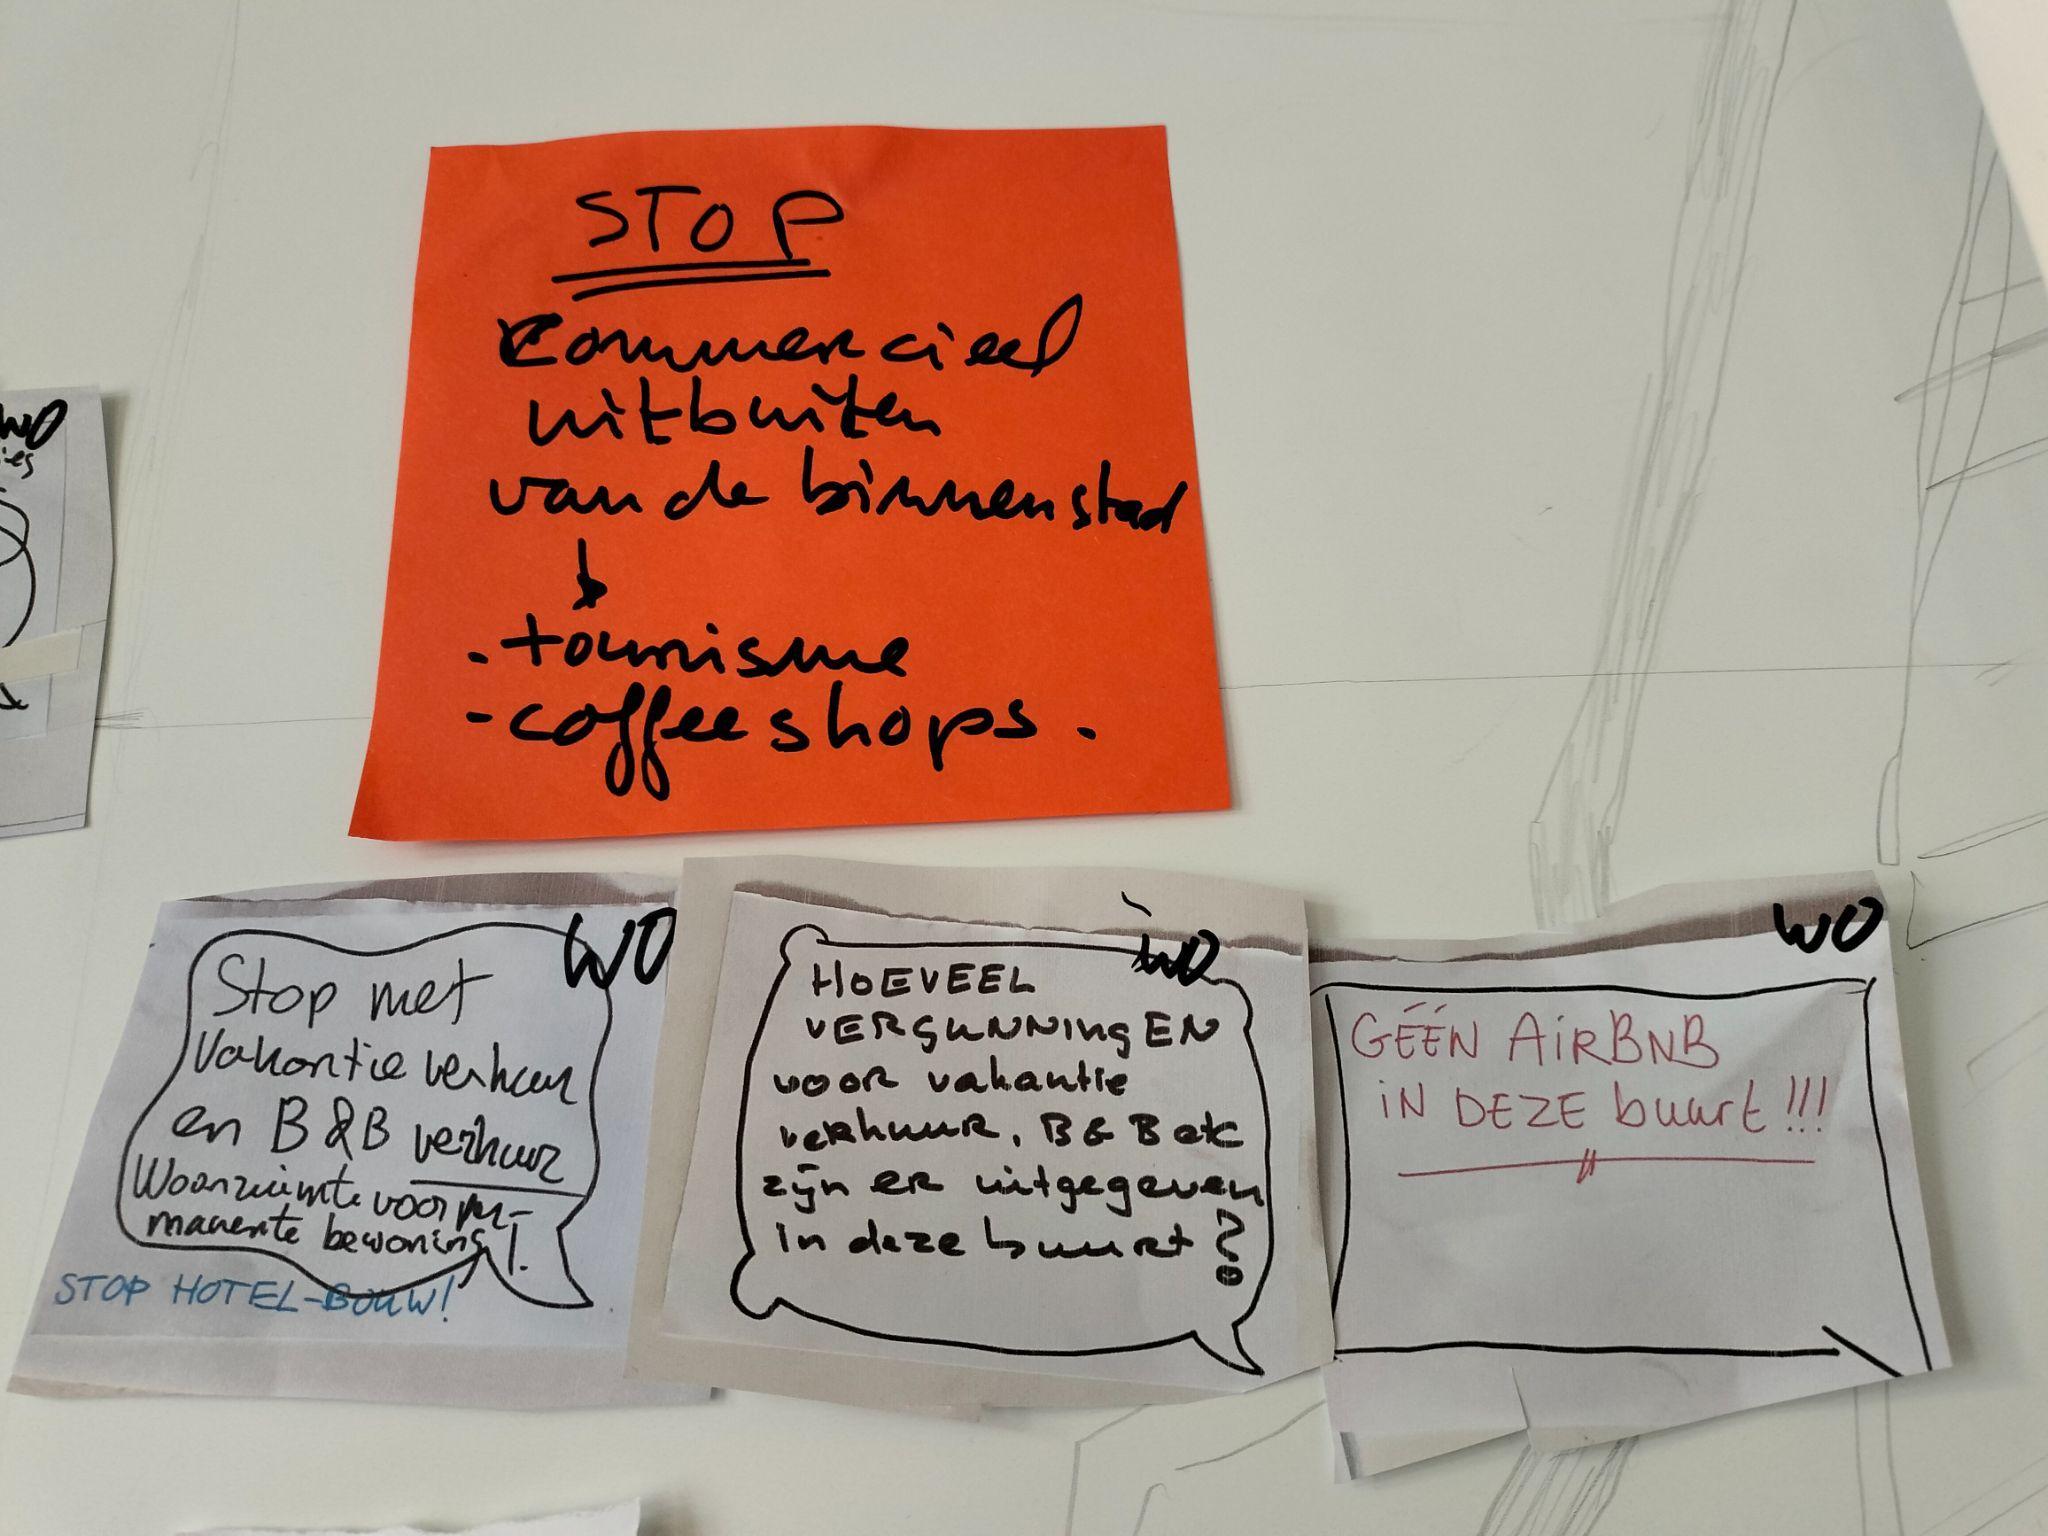 STOP
Commercieel
uitbuiten
van de binnenstad
- tourisme
- coffeeshops.
WO
ies
WO
Stop met
Vakantie verhuur
en B&B verhuur
Woonruimte voor per-
manente bewoning!
STOP HOTEL-BOUW!
WO
HOEVEEL
VERGUNNINGEN
voor vakantie
verhuur, B&B etc
zijn er uitgegeven
in deze buurt?
WO
GÉÉN AIRBNB
IN DEZE buurt!!!